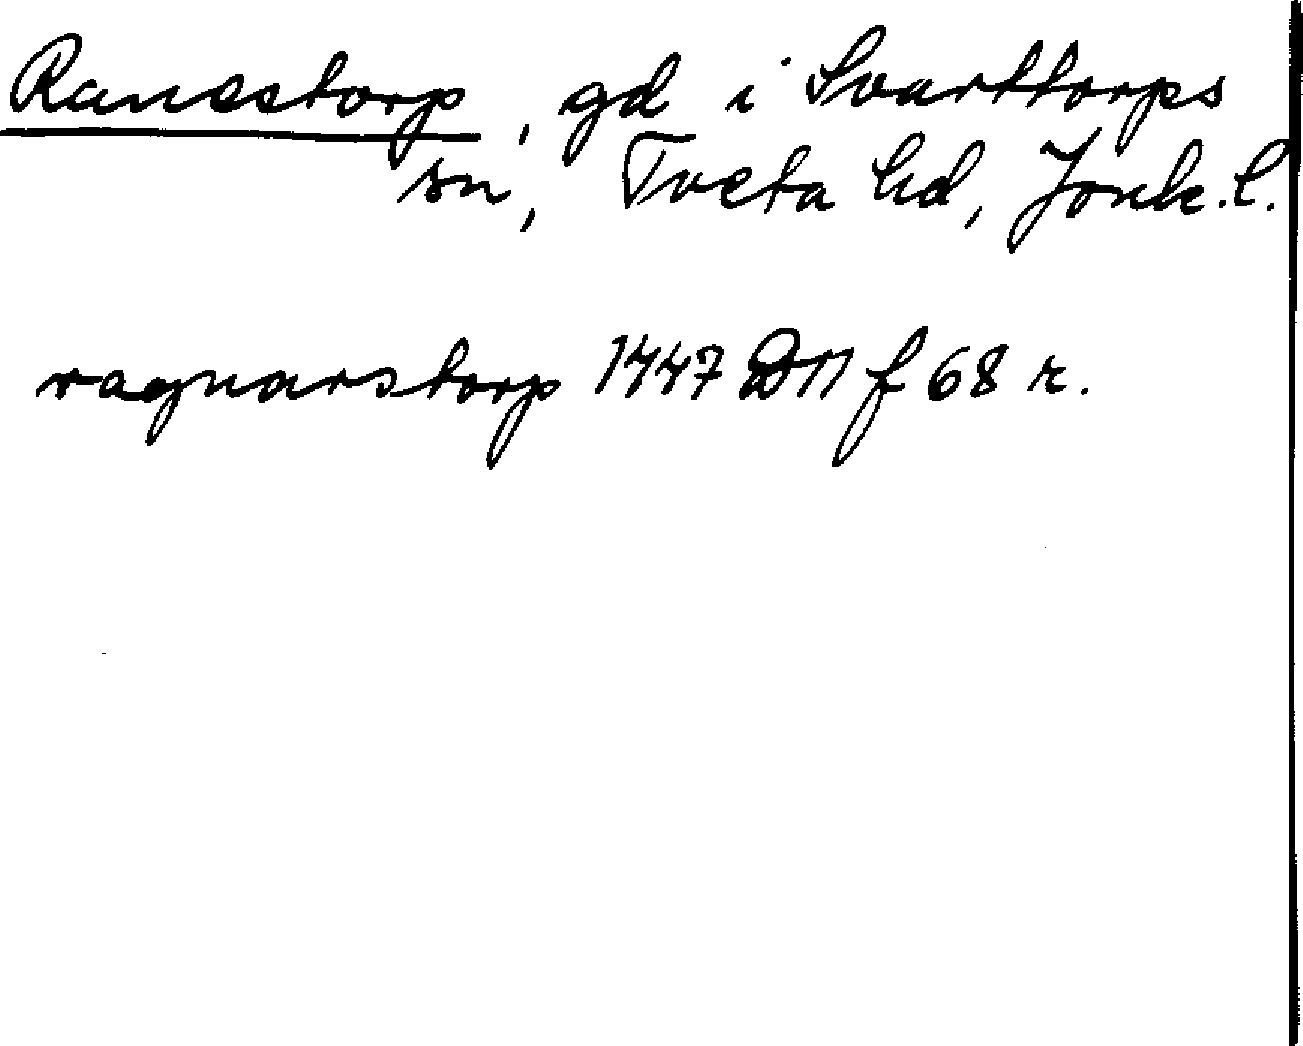 Ranestorp, gd i Svarttorps
sn, Tveta hd, Jönk. l.
ragnarstorp 1447 D11 f 68 r.